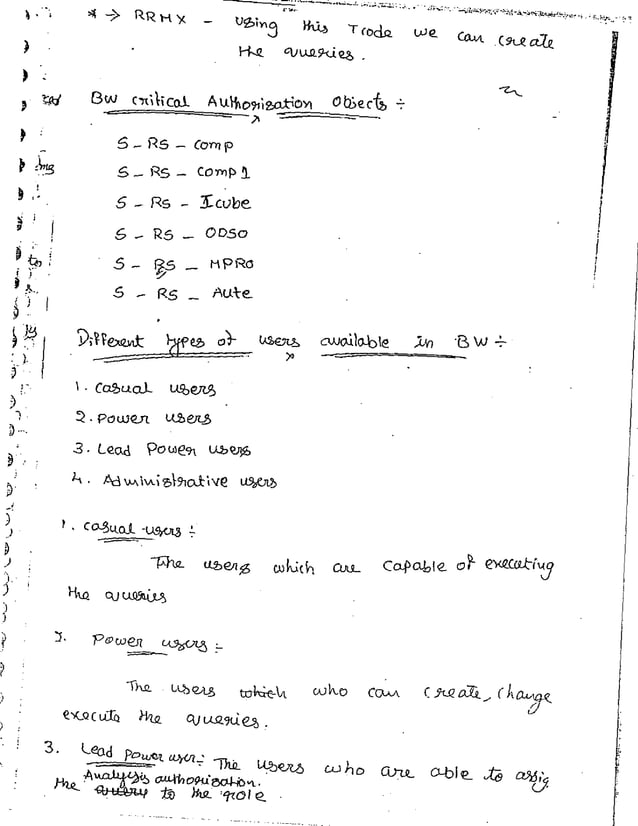 * → RRMX - using this Tcode we can create
the queries.
BW critical Authorisation Objects ÷
S - RS - comp
S - RS - comp 1
S - RS - Icube
S - RS - ODSO
S - RS - MPRO
S - RS - Aute
Different types of users available in BW ÷
1. casual users
2. Power users
3. Lead Power users
4. Administrative users
1. casual users ÷
The users which are capable of executing
the queries
2. Power users :-
The users which who can create, change
execute the queries.
3. Lead power user:- The users who are able to assig
Analysis authorisation.
the query to the role.